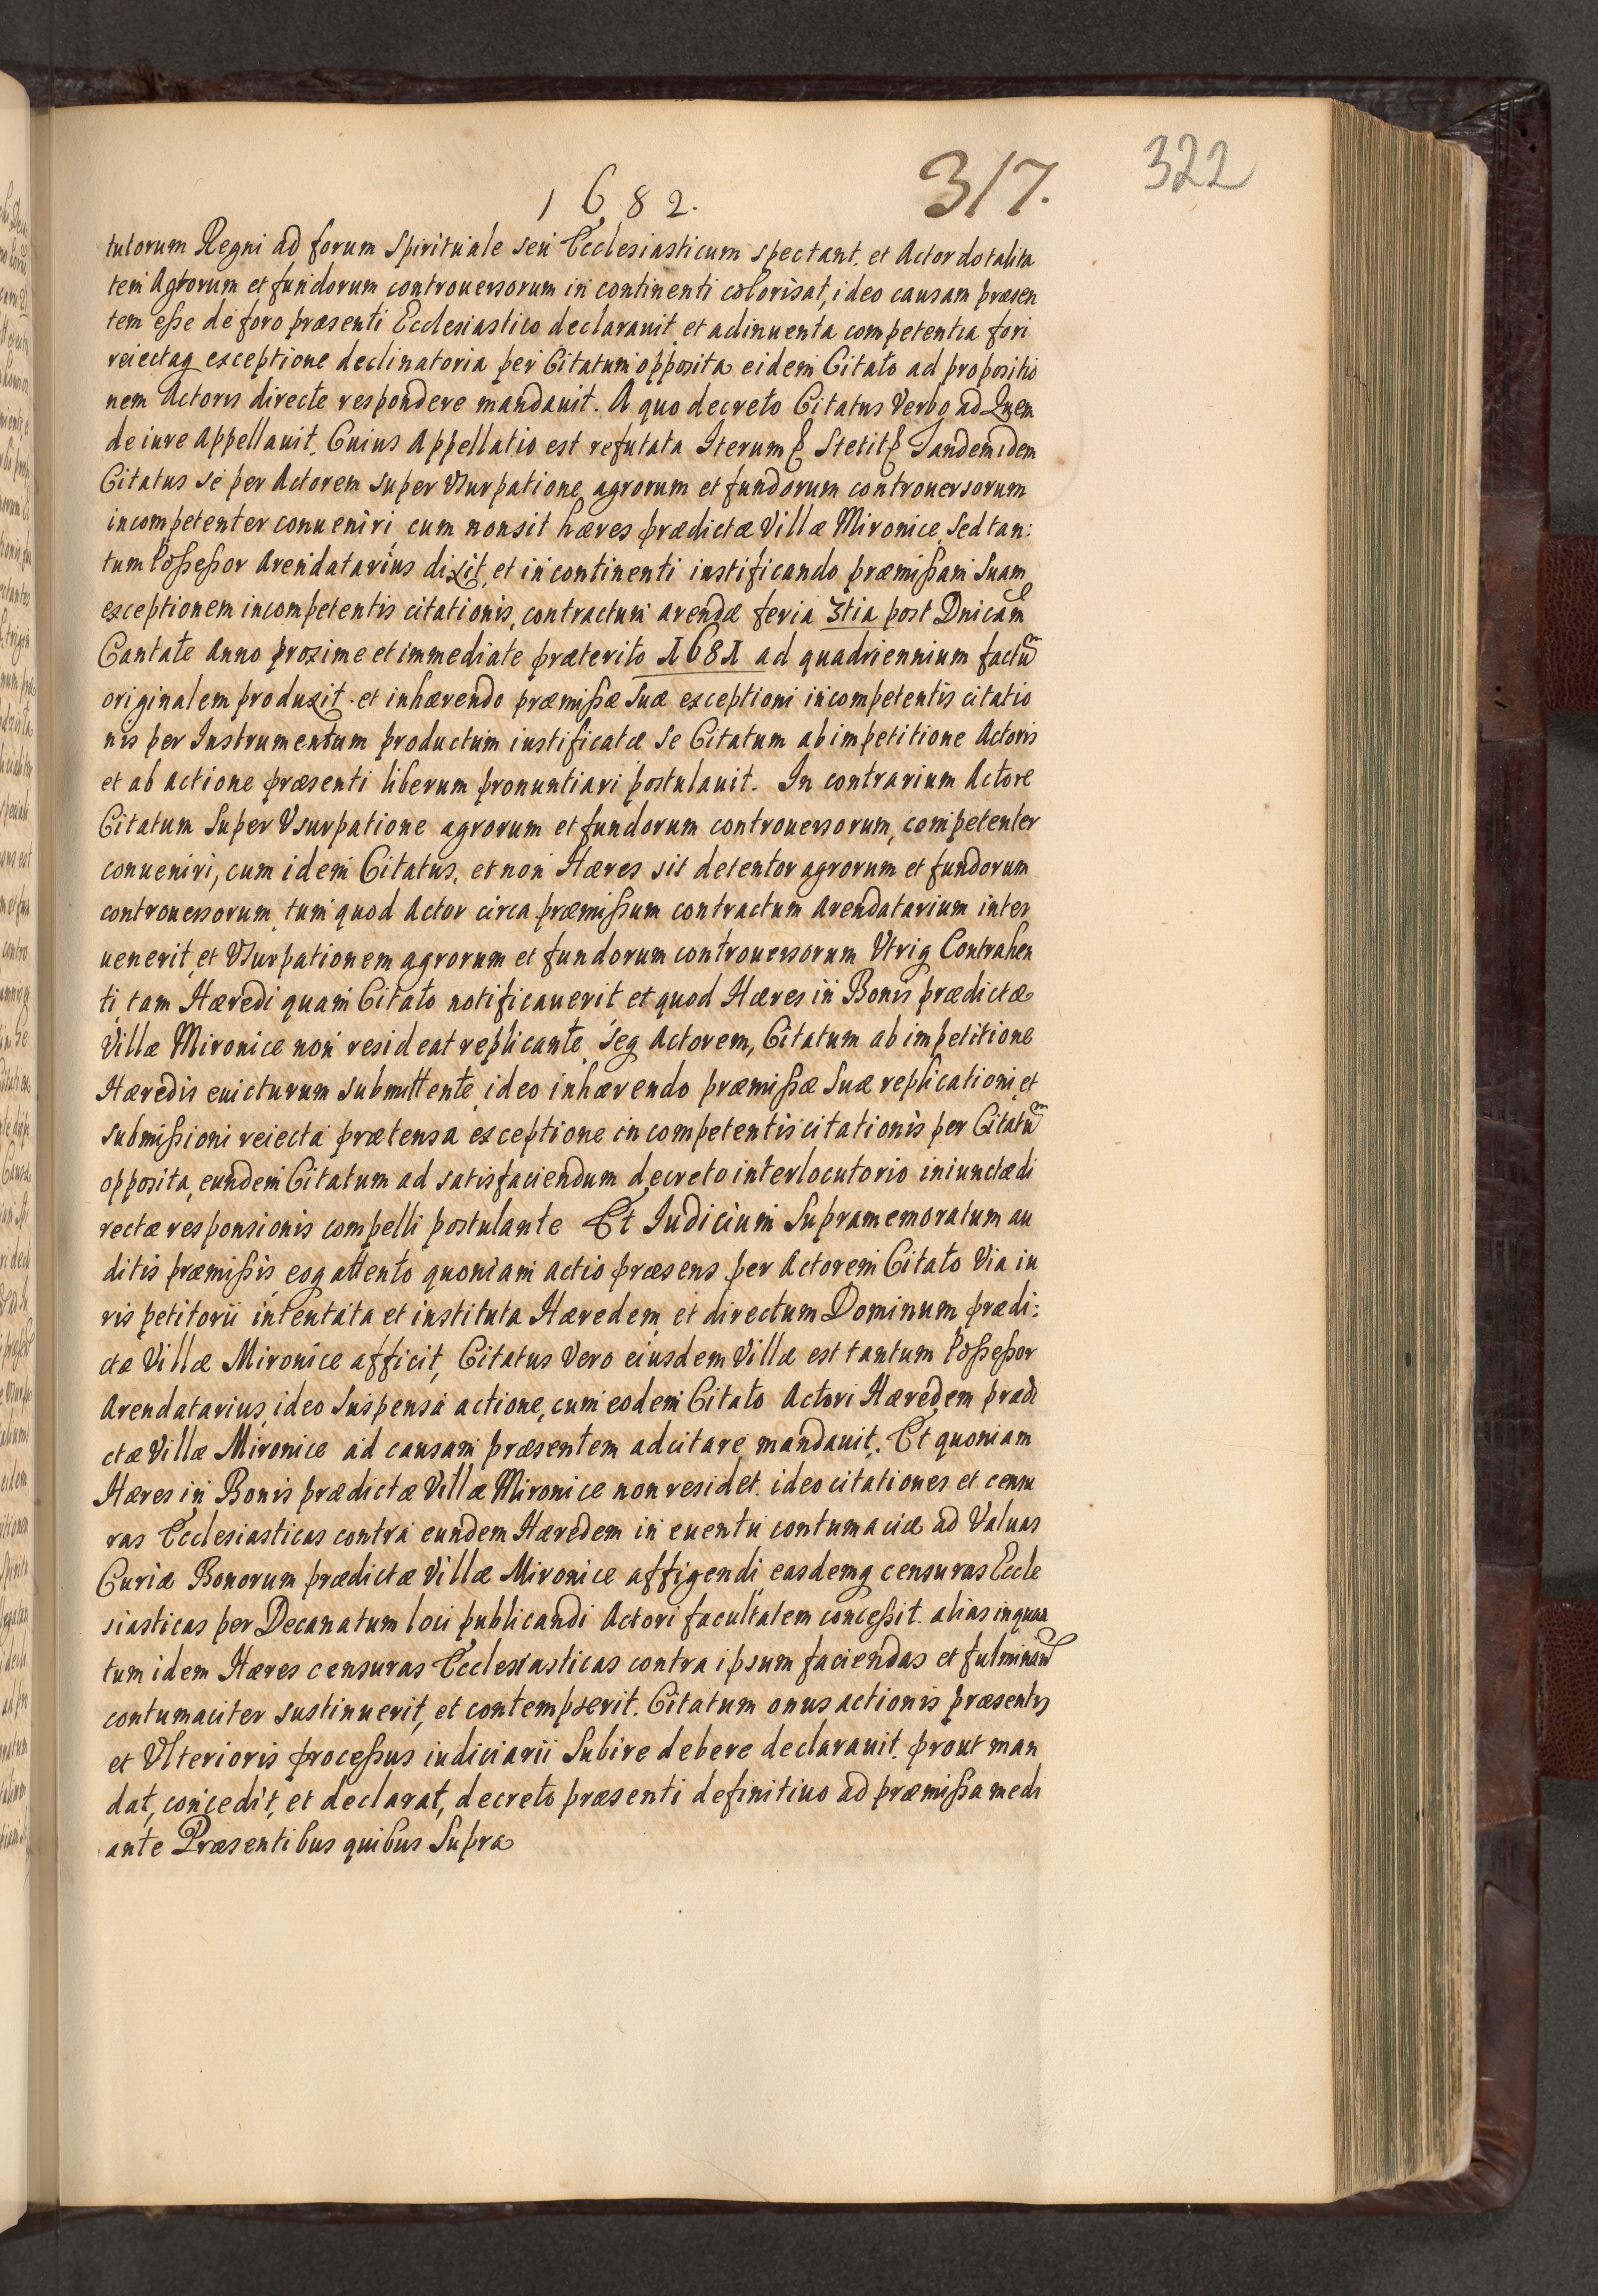 1682.
317.
322
tutorum Regni ad forum Spirituale seu Ecclesiasticum spectant. et Actor dotalita
tem Agrorum et fundorum controuersorum in continenti colorisat, ideo causam præsen
tem eſse de foro præsenti Ecclesiastico declarauit et adinuenta competentia fori
reiectaq exceptione declinatoria per Citatum opposita eidem Citato ad propositio
nem Actoris directe respondere mandauit. A quo decreto Citatus Verbo ad Quem
de iure Appellauit. Cuius Appellatio est refutata Iterum & Stetit & Tandem idem
Citatus se per Actorem super Vsurpatione agrorum et fundorum controuersorum
incompetenter conueniri, cum non sit hæres prædictæ Villæ Mironice, Sed tan:
tum Poſseſsor Arendatarius dixit, et in continenti iustificando præmiſsam Suam
exceptionem incompetentis citationis, contractum arendæ feria 3tia post Dnicam
Cantate Anno proxime et immediate præterito 1681 ad quadriennium factũ
originalem produxit. et inhærendo præmiſsæ Suæ exceptioni incompetentis citatio
nis per Instrumentum productum iustificatæ Se Citatum ab impetitione Actoris
et ab actione præsenti liberum pronuntiari postulauit. In contrarium Actore
Citatum Super Vsurpatione agrorum et fundorum controuersorum, competenter
conueniri, cum idem Citatus, et non Hæres sit detentor agrorum et fundorum
controuersorum, tum quod Actor circa præmiſsum contractum Arendatarium inter
uenerit, et Vsurpationem agrorum et fundorum controuersorum Vtriq Contrahen
ti, tam Hæredi quam Citato notificauerit et quod Hæres in Bonis prædictæ
Villæ Mironice non resideat replicante, seq Actorem, Citatum ab impetitione
Hæredis euicturum submittente, ideo inhærendo præmiſsæ Suæ replicationi, et
submiſsioni reiecta prætensa exceptione incompetentis citationis per Citatũ
opposita, eundem Citatum ad satisfaciendum decreto interlocutorio iniunctæ di
rectæ responsionis compelli postulante Et Iudicium Supramemoratum au
ditis præmiſsis, eoq attento quoniam actio præsens per Actorem Citato Via iu
ris petitorii intentata et instituta Hæredem et directum Dominum prædi:
ctæ Villæ Mironice afficit, Citatus Vero eiusdem Villæ est tantum Poſseſsor
Arendatarius, ideo Suspensa actione, cum eodem Citato Actori Hæredem prædi
ctæ Villæ Mironice ad causam præsentem adcitare mandauit. Et quoniam
Hæres in Bonis prædictæ Villæ Mironice non residet. ideo citationes et censu
ras Ecclesiasticas contra eundem Hæredem in euentu contumaciæ ad Valuas
Curiæ Bonorum prædictæ Villæ Mironice affigendi, easdemq censuras Eccle
siasticas per Decanatum loci publicandi Actori facultatem conceſsit. alias in quan
tum idem Hæres censuras Ecclesiasticas contra ipsum faciendas et fulminand
contumaciter sustinuerit, et contempserit. Citatum onus actionis præsentis
et Vlterioris proceſsus iudiciarii Subire debere declarauit. prout man
dat, concedit, et declarat, decreto præsenti definitiuo ad præmiſsa medi
ante Præsentibus quibus Supra